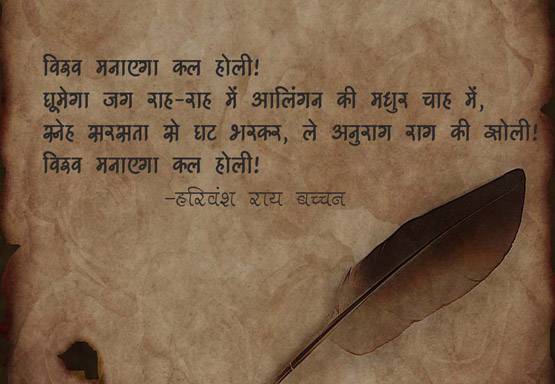 विश्व मनाएगा कल होली!
घूमेगा जग राह-राह में आलिंगन की मधुर चाह में,
स्नेह सरसता से घट भरकर, ले अनुराग राग की झोली!
विश्व मनाएगा कल होली!
-हरिवंश राय बच्चन